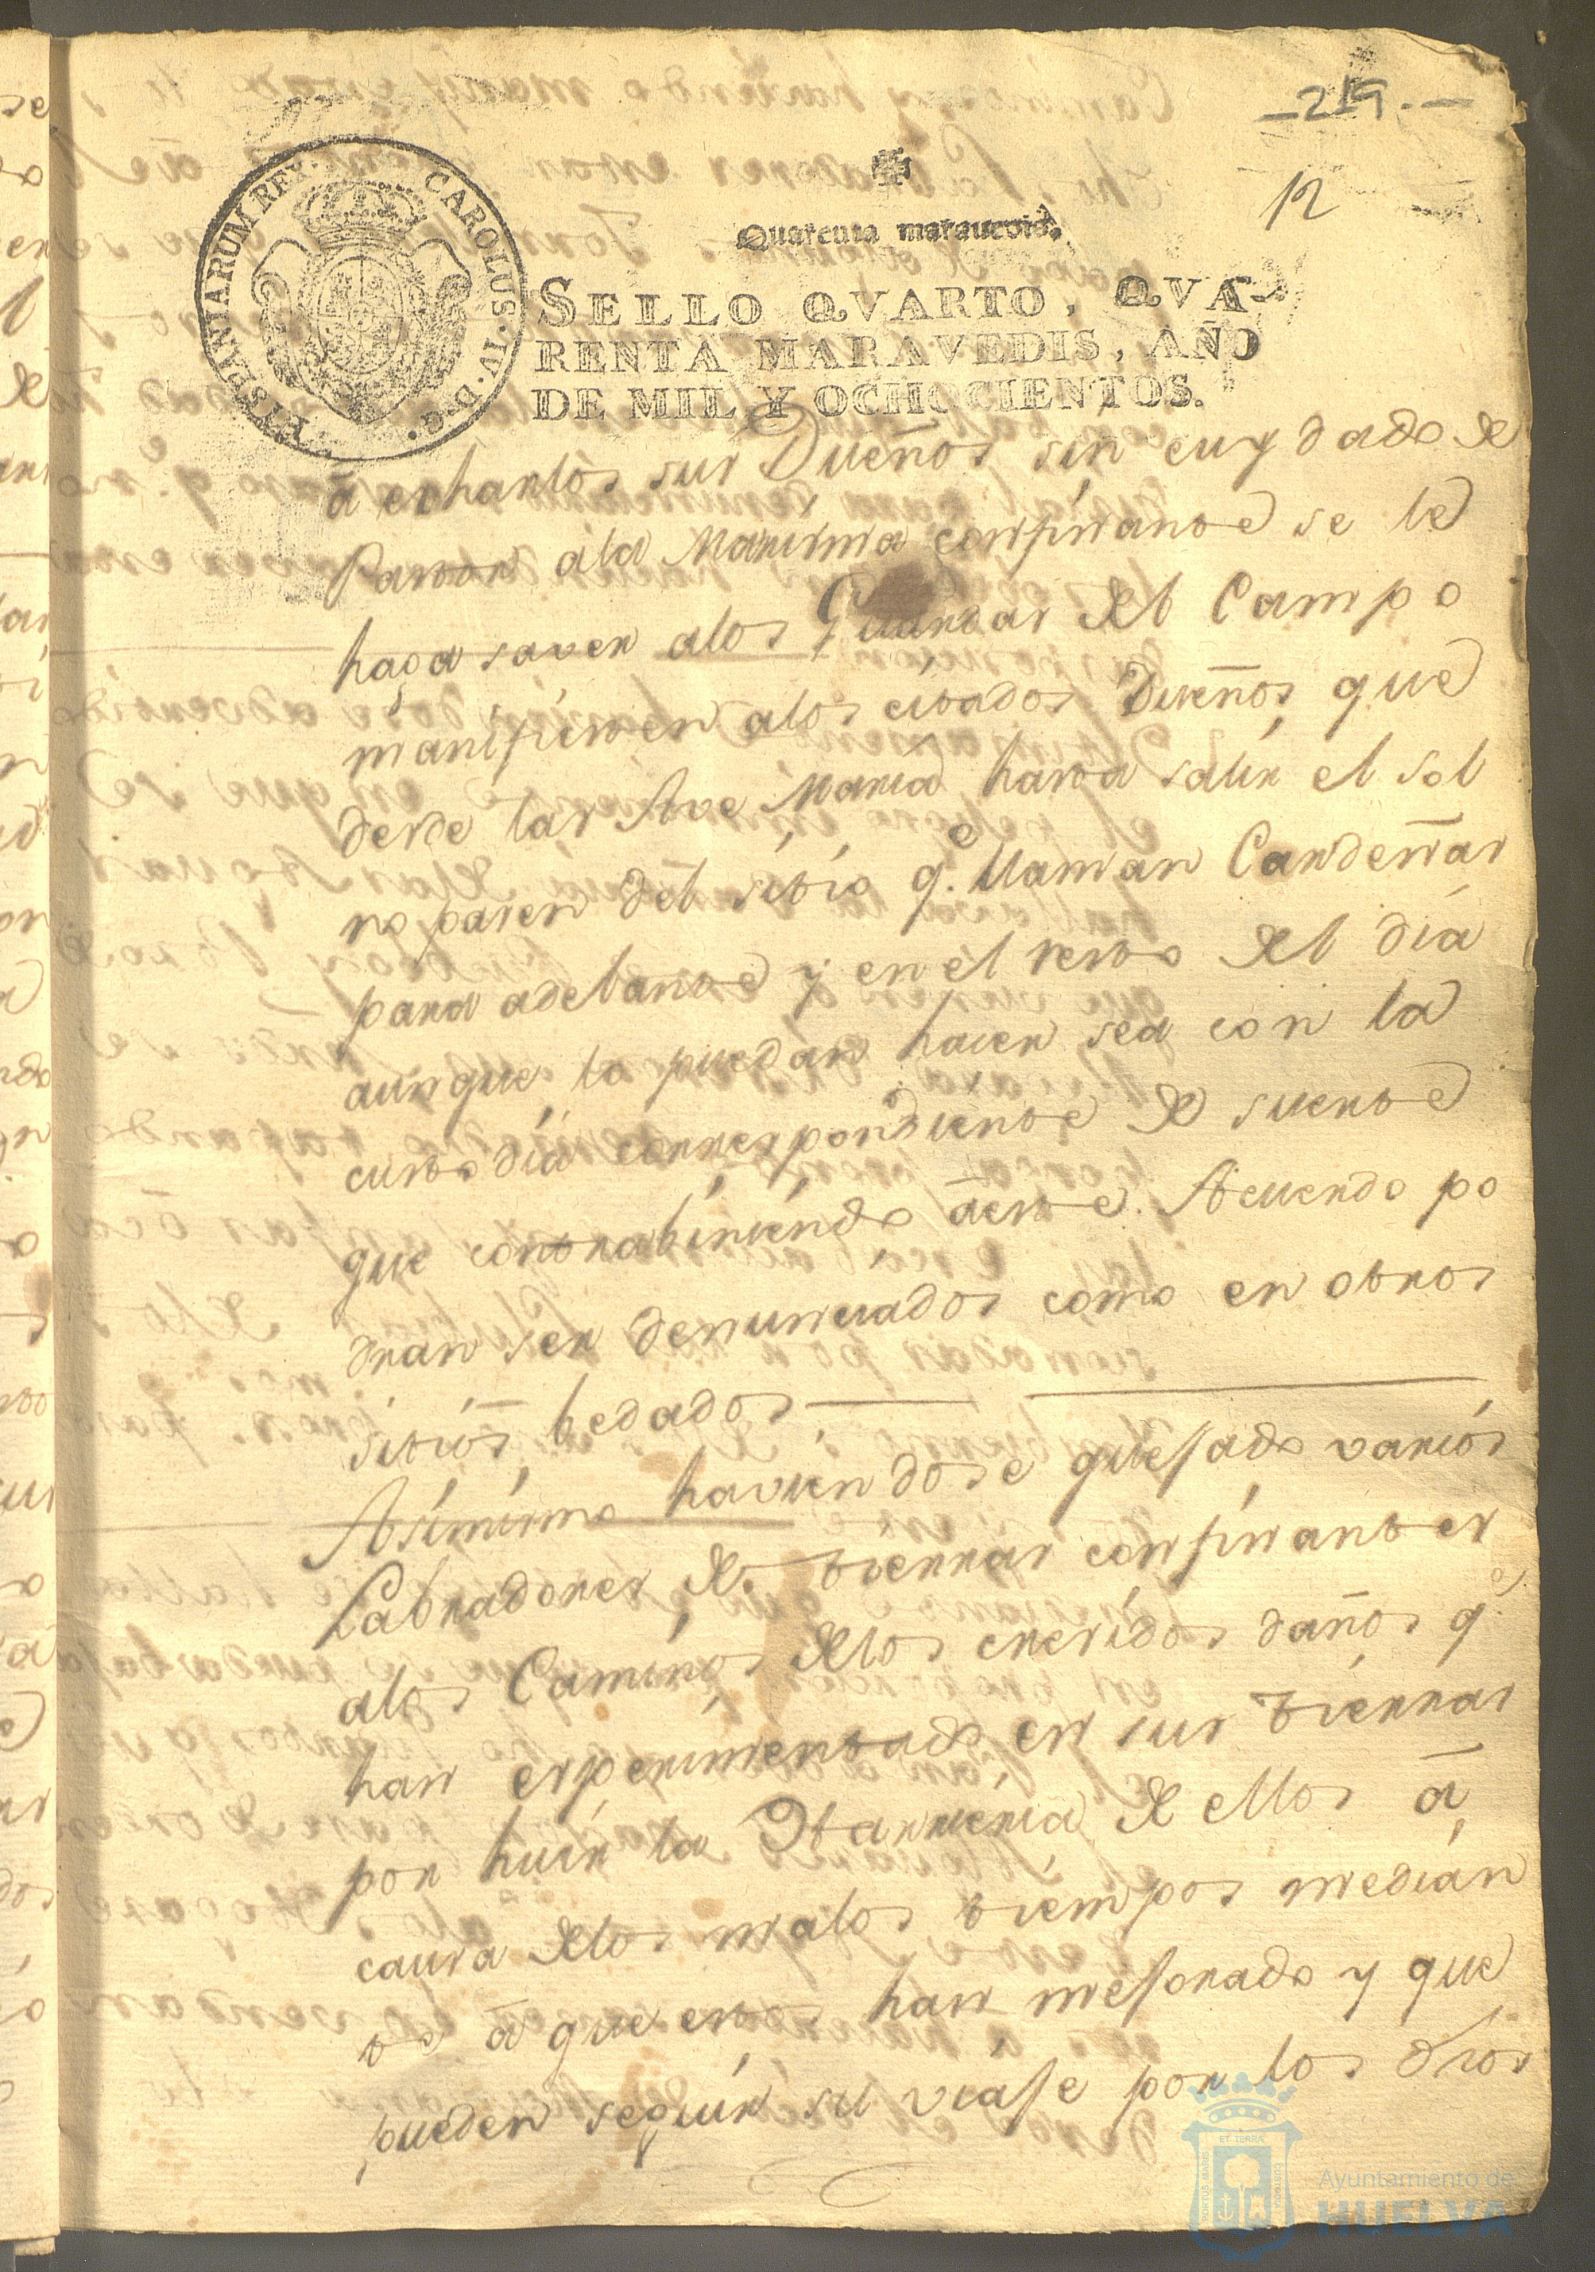 -219.-
12
CAROLUS. IV. D. G. HISPANIARUM REX.
Quarenta maravedis.
SELLO QVARTO, QVA-
RENTA MARAVEDIS, AÑO
DE MIL Y OCHOCIENTOS.
á echarlos sus Dueños sin cuydado de
Pastor ala Marisma confinante se le
haga saver alos Guardas del Campo
manifiesten alos citados Dueños, que
desde las Ave Maria hasta salir el sol
no pasen del sitio q.e llaman Cardeñas
para adelante y en el resto del dia
aunque lo puedan hacer sea con la
custodia correspondiente de suerte
que contrabiniendo á este Acuerdo po
dran ser denunciados como en otros
sitios bedados
Asimismo haviendose quejado varios
Labradores de tierras confinantes
alos Caminos delos crecidos daños q.e
han experimentado en sus tierras
por huir la Harrieria de ellos á
causa delos malos tiempos median
te á que estos han mejorado y que
pueden seguir su viaje por los dhos
ET TERRÆ
Ayuntamiento de
HUELVA